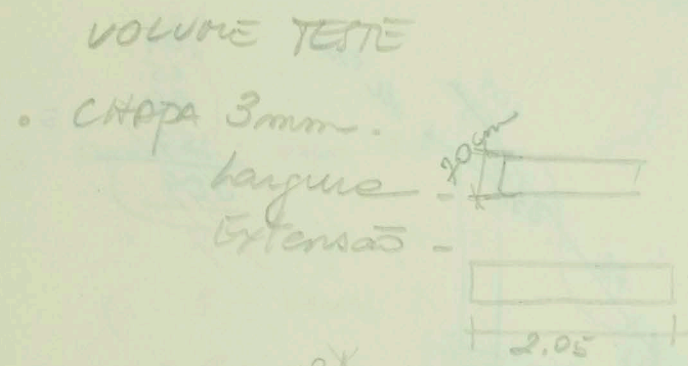 VOLUME TESTE
• CHAPA 3mm.
Largura -
20cm
Extensão -
2.05